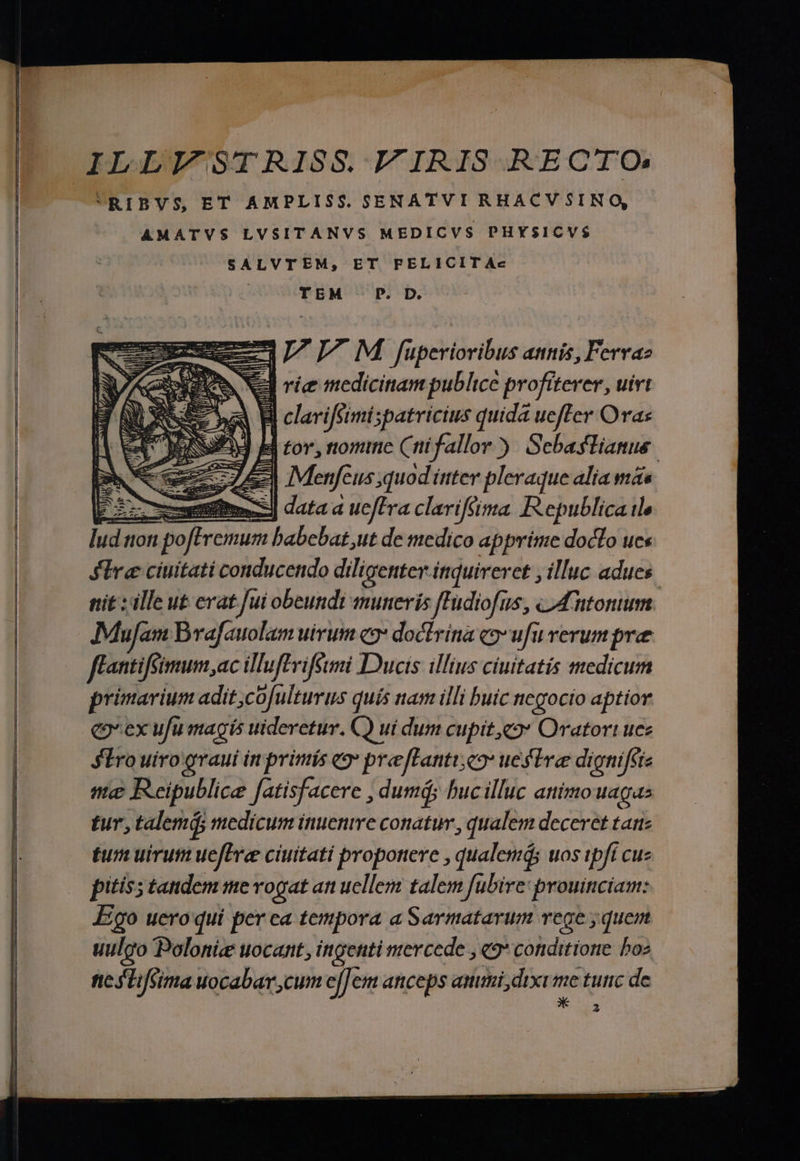 ILLVSTRISS. VIRIS RECTO-
RIBVS, ET AMPLISS. SENATVI RHACVSINO,
AMATVS LVSITANVS MEDICVS PHYSICVS
SALVTEM, ET FELICITA-
TEM P. D.
VVM ſuperioribus annis, Ferra-
riæ medicinam publicè profiterer, uiri
clariſsimi patricius quidã ueſter Ora-
tor, nomine (ni fallor) Sebaſtianus
Menſeus, quod inter pleraque alia mã-
data à ueſtra clariſsima Republica il-
lud non poſtremum habebat, ut de medico apprime docto ue-
ſtræ ciuitati conducendo diligenter inquireret, illuc adue-
nit: ille ut erat ſui obeundi muneris ſtudioſus, Antonium
Muſam Braſauolam uirum & doctrina & uſu rerum præ-
ſtantiſsimum, ac illuſtriſsimi Ducis illius ciuitatis medicum
primarium adit, cõſulturus quis nam illi huic negocio aptior
& ex uſu magis uideretur. Qui dum cupit, & Oratori ue-
ſtro uiro graui in primis & præſtanti, & ueſtræ digniſsi-
mæ Reipublicæ ſatisfacere, dumq́; huc illuc animo uaga-
tur, talemq́; medicum inuenire conatur, qualem deceret tan-
tum uirum ueſtræ ciuitati proponere, qualemq́; uos ipſi cu-
pitis; tandem me rogat an uellem talem ſubire prouinciam:
Ego uero qui per ea tempora a Sarmatarum rege, quem
uulgo Poloniæ uocant, ingenti mercede, & conditione ho-
neſtiſsima uocabar, cum eſſem anceps animi, dixi me tunc de
* 2